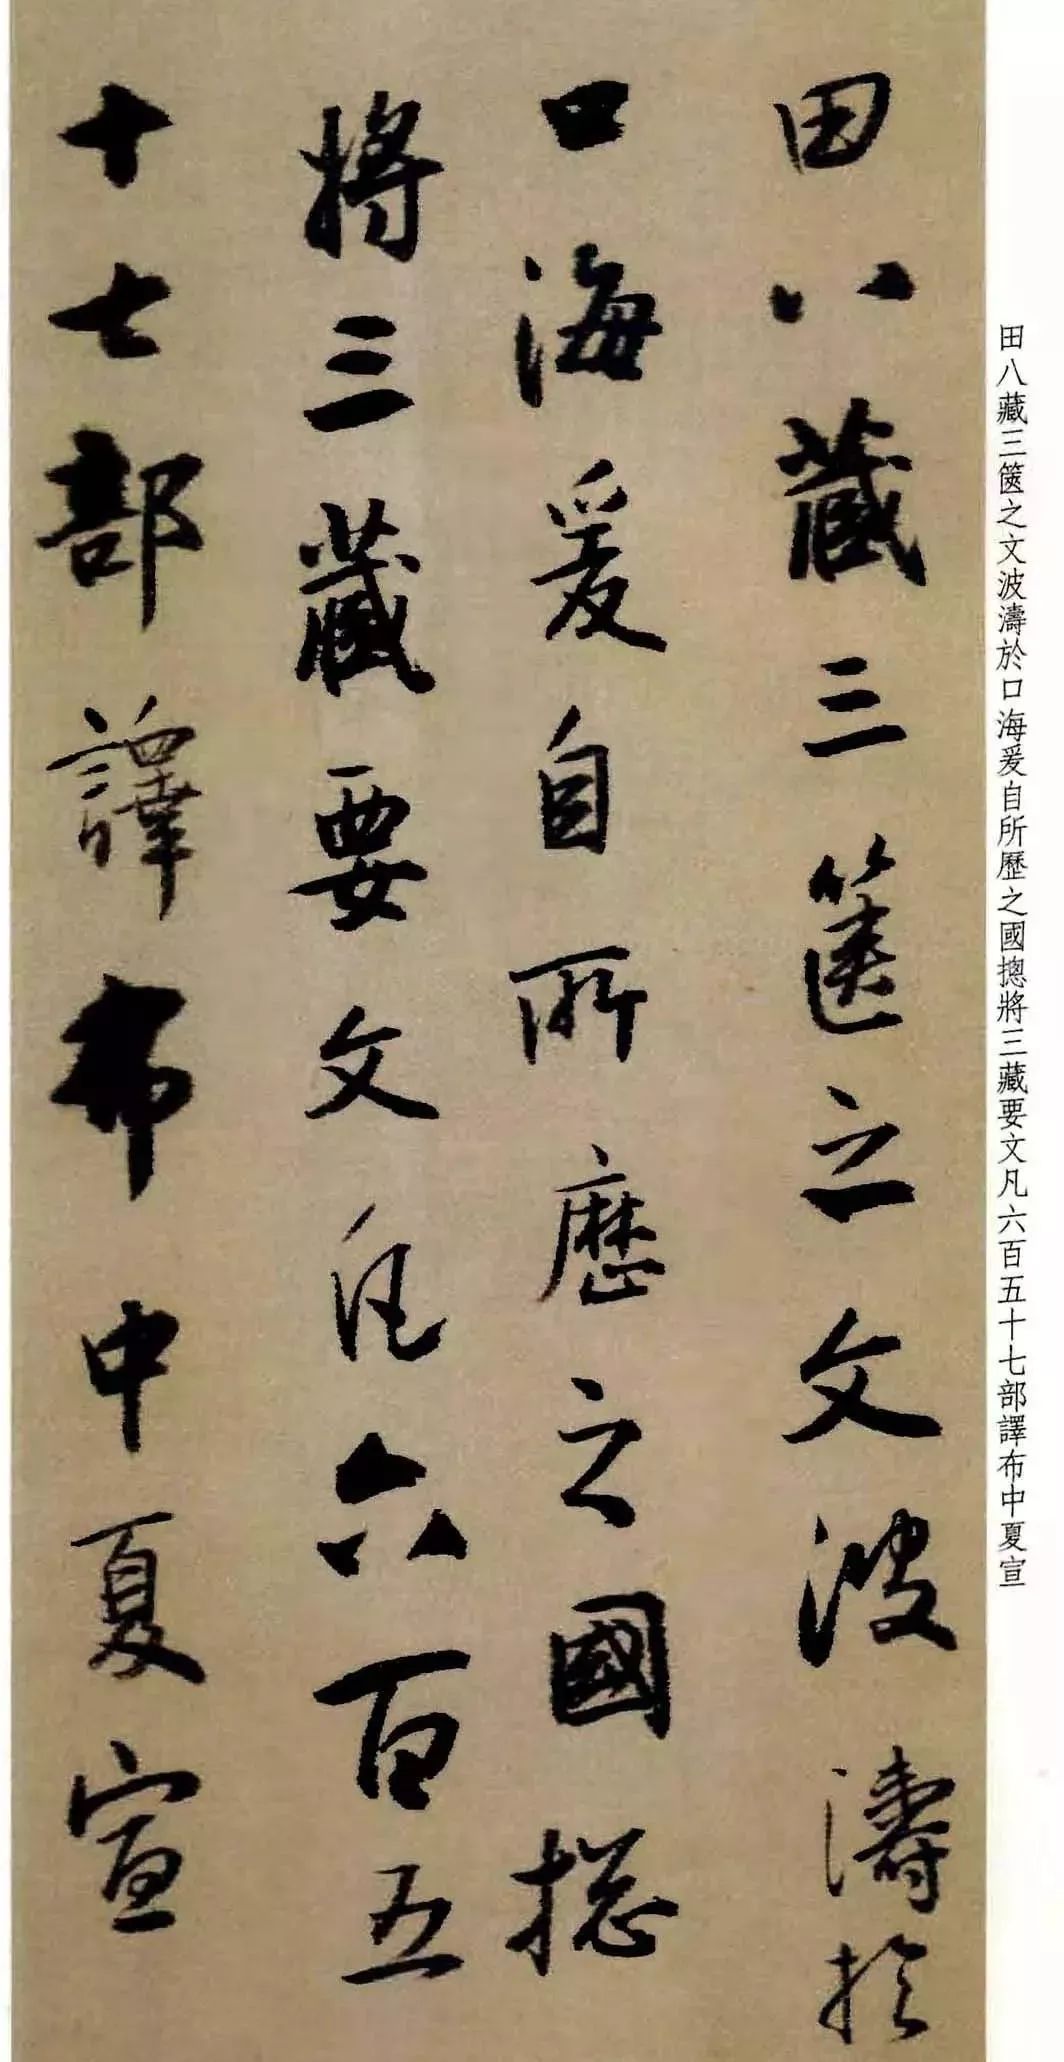 田八藏三箧之文波濤於
口海爰自所歷之國摠
將三藏要文凡六百五
十七部譯布中夏宣
田八藏三箧之文波濤於口海爰自所歷之國摠將三藏要文凡六百五十七部譯布中夏宣